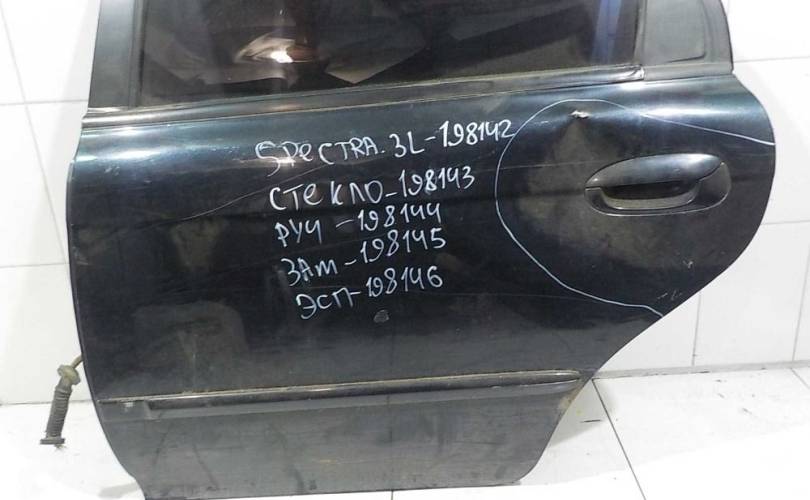 SPECTRA. 3L-198142
СТЕКЛО-198143
РУЧ-198144
ЗАМ-198145
ЭСП-198146